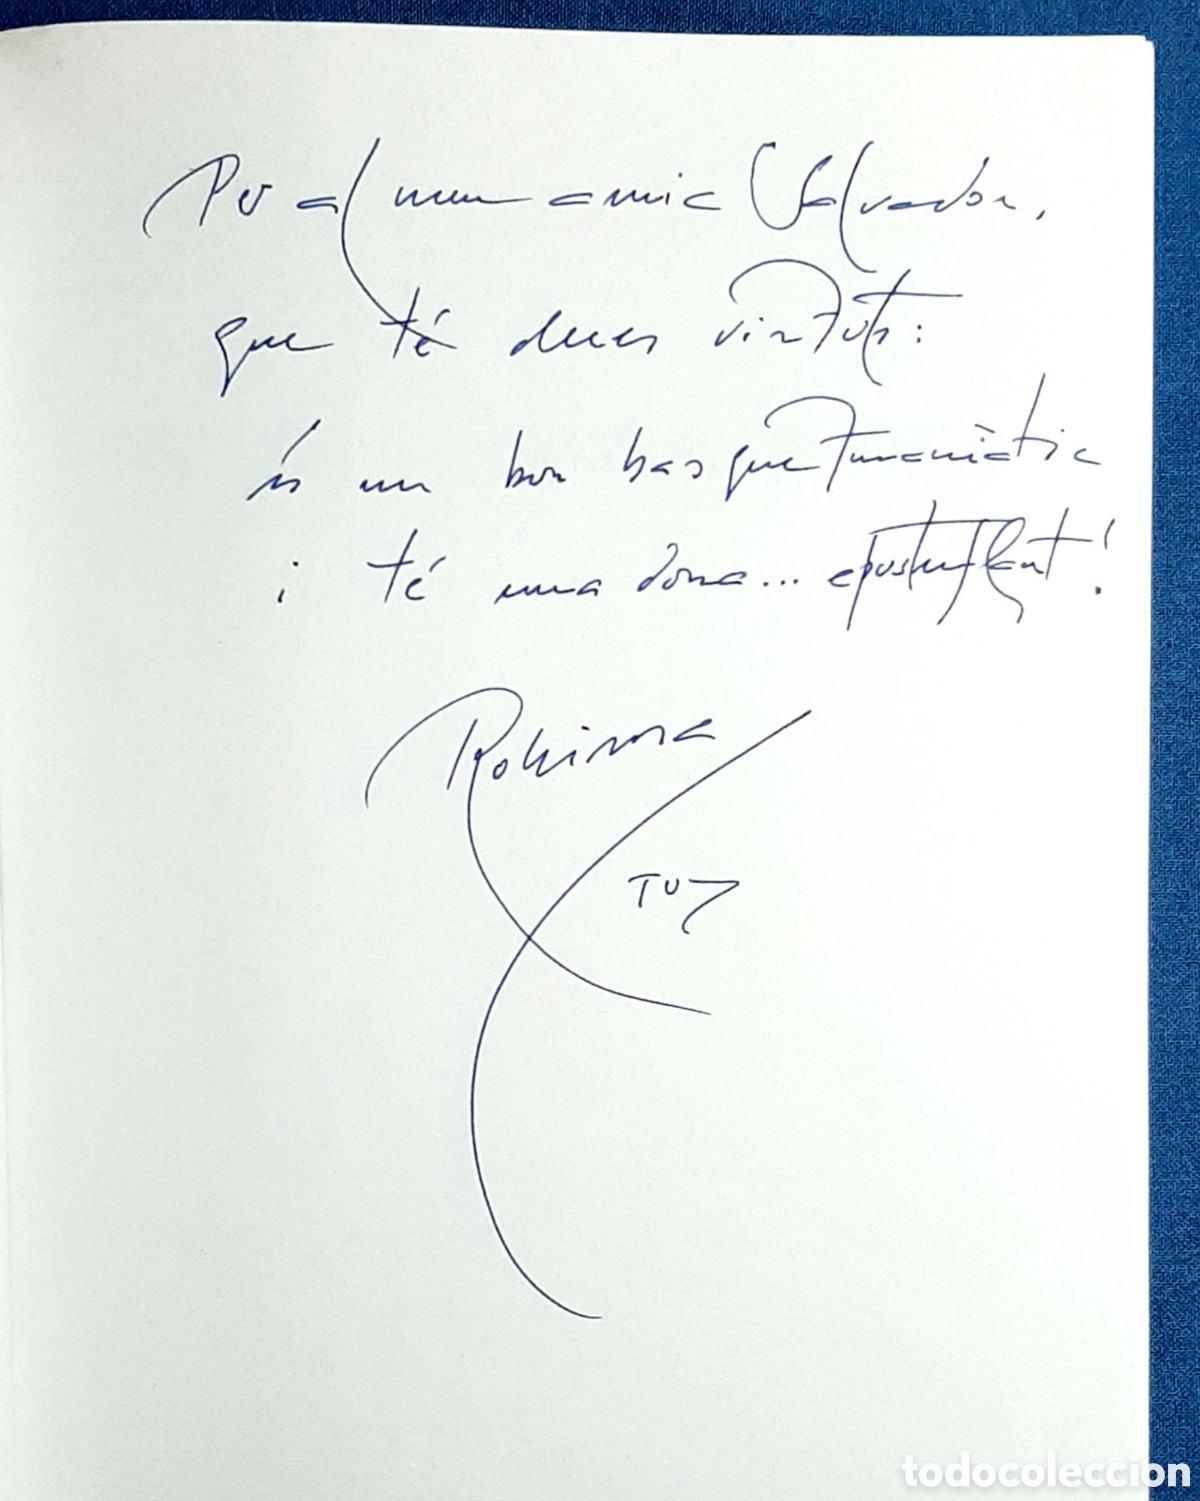 Per al meu amic Salvador,
que té dues virtuts:
és un bon basquetumaniàtic
i té una dona... apustuflant!
todocoleccion